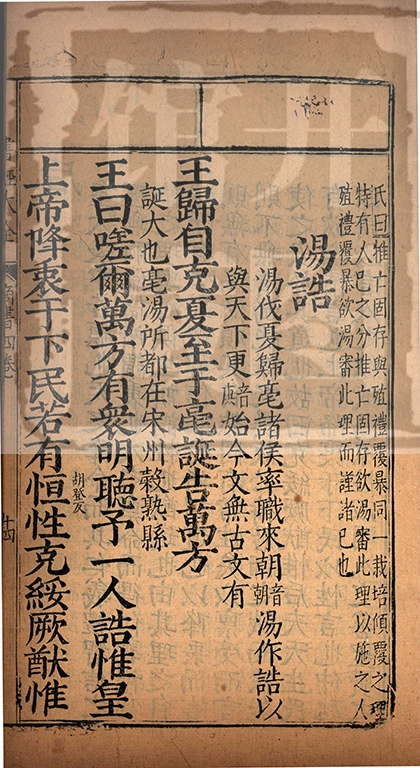 氏曰推亡固存與殖禮覆暴同一栽培傾覆之理
特有人已之分推亡固存欲湯審此理以施之人
殖禮覆暴欲湯審此理而謹諸已也
湯誥
湯伐夏歸亳諸侯率職來朝音朝湯作誥以
與天下更音庚始今文無古文有
王歸自克夏至于亳誕告萬方
誕大也亳湯所都在宋州穀熟縣
王曰嗟爾萬方有衆明聽予一人誥惟皇
上帝降衷于下民若有恒胡登反性克綏厥猷惟
書經大全
商書四卷
十四